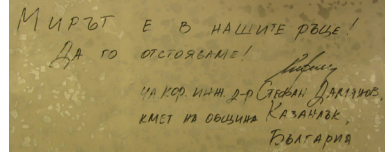 Мирът е в нашите ръце!
Да го отстояваме!
чл. кор. инж. д-р Стефан Дамянов,
кмет на община Казанлък,
България